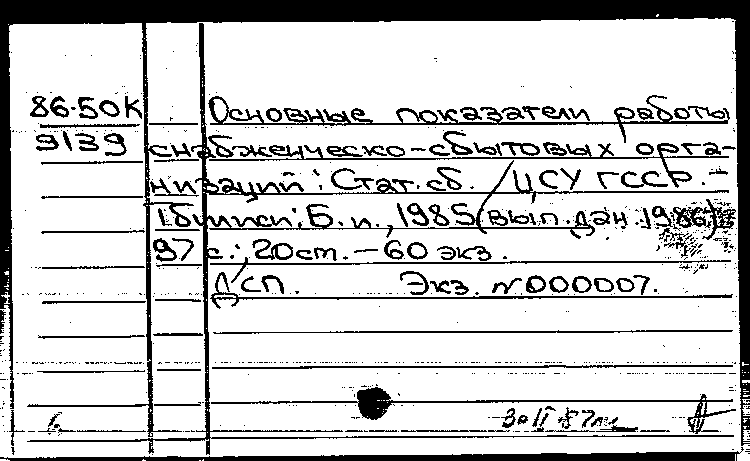 86-50К Основные показатели работы
9139 снабженческо-сбытовых орга-
низаций: Стат. сб. / ЦСУ ГССР. -
Тбилиси: Б. и., 1985 (вып. дан. 1986)
97 с.; 20 см. - 60 экз.
ДСП. Экз. №000007.